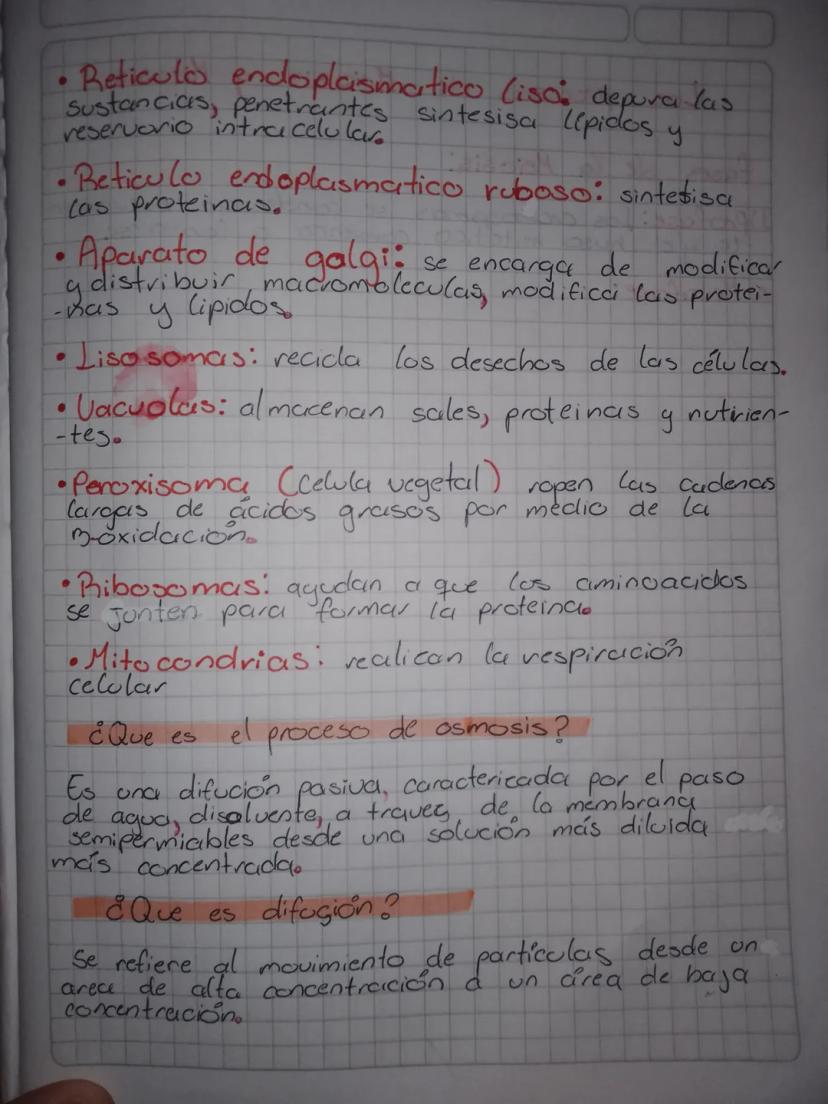 • Reticulo endoplasmatico liso: depura las
sustancias, penetrantes sintesisa lípidos y
reservorio intracelular.
• Reticulo endoplasmatico ruboso: sintetisa
las proteinas.
• Aparato de golgi: se encarga de modificar
y distribuir macromoleculas, modifica las protei-
-nas y lipidos.
• Lisosomas: recicla los desechos de las células.
• Vacuolas: almacenan sales, proteinas y nutrien-
-tes.
• Peroxisoma (celula vegetal) ropen las cadenas
largas de ácidos grasos por medio de la
β-oxidación.
• Ribosomas: ayudan a que los aminoacidos
se junten para formar la proteina.
• Mitocondrias: realican la respiración
celular
¿Que es el proceso de osmosis?
Es una difución pasiva, caractericada por el paso
de agua, disolvente, a traves de la membrana
semipermiables desde una solución más diluida
más concentrada.
¿Que es difugión?
Se refiere al movimiento de partículas desde un
area de alta concentración a un área de baja
concentración.